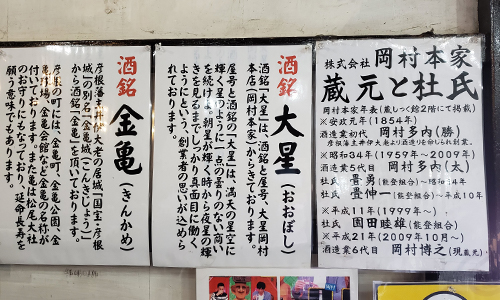 株式会社 岡村本家
蔵元と杜氏
岡村本家年表(蔵しっく館2階にて掲載)
※安政元年(1854年)
酒造業初代 岡村多内(勝)
彦根藩主井伊大老より酒造りを命じられ創業。
※昭和34年(1959年~2009年)
酒造業5代目 岡村多内(太)
杜氏 菅勇(能登組合)~昭和54年
杜氏 豊伸一(能登組合)~平成10年
※平成11年(1999年~)
杜氏 園田睦雄(能登組合)
※平成21年(2009年10月~)
酒造業6代目 岡村博之(現蔵元)
酒銘 大星(おおぼし)
酒銘「大星」は、酒銘と屋号、大星岡村
本店(岡村本家)からきております。
屋号と酒銘の「大星」は、満天の星空に
輝く星のように「一点の曇りのない商い
を続けよ。朝星が輝く時から夜星の輝
きを見るまで、しっかり真面目に働く
ように」という、創業者の思いが込めら
れております。
酒銘 金亀(きんかめ)
彦根藩主井伊大老の居城「国宝・彦根
城」の別名「金亀城(こんきじょう)」
から酒銘「金亀」を頂いております。
彦根の町には、金亀町、金亀公園、金
亀球場、金亀会館など「金亀」の名称が
付いております。また亀は松尾大社
のお守りにもなっており、延命長寿を
願う意味でもあります。